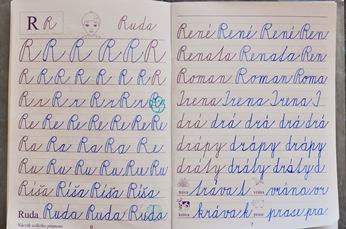 R R Ruda
R R R R R R R
R R R R R R R R R
R r R r R r R r R r
Re Re Re Re Re Re Re
Ra Ra Ra Ra Re
Ru Ru Ru Ru Ru
Ríša Ríša Ríša Ríša
Ruda Ruda Ruda Ruda
Nácvik velkého písmene
René René René Ren
Renata Renata Ren
Roman Roman Roma
Irena Irena Irena I
drá drá drá drá drá
drápy drápy drápy
dráty dráty dráty d
tráva t vrána vr
kráva k prase pra